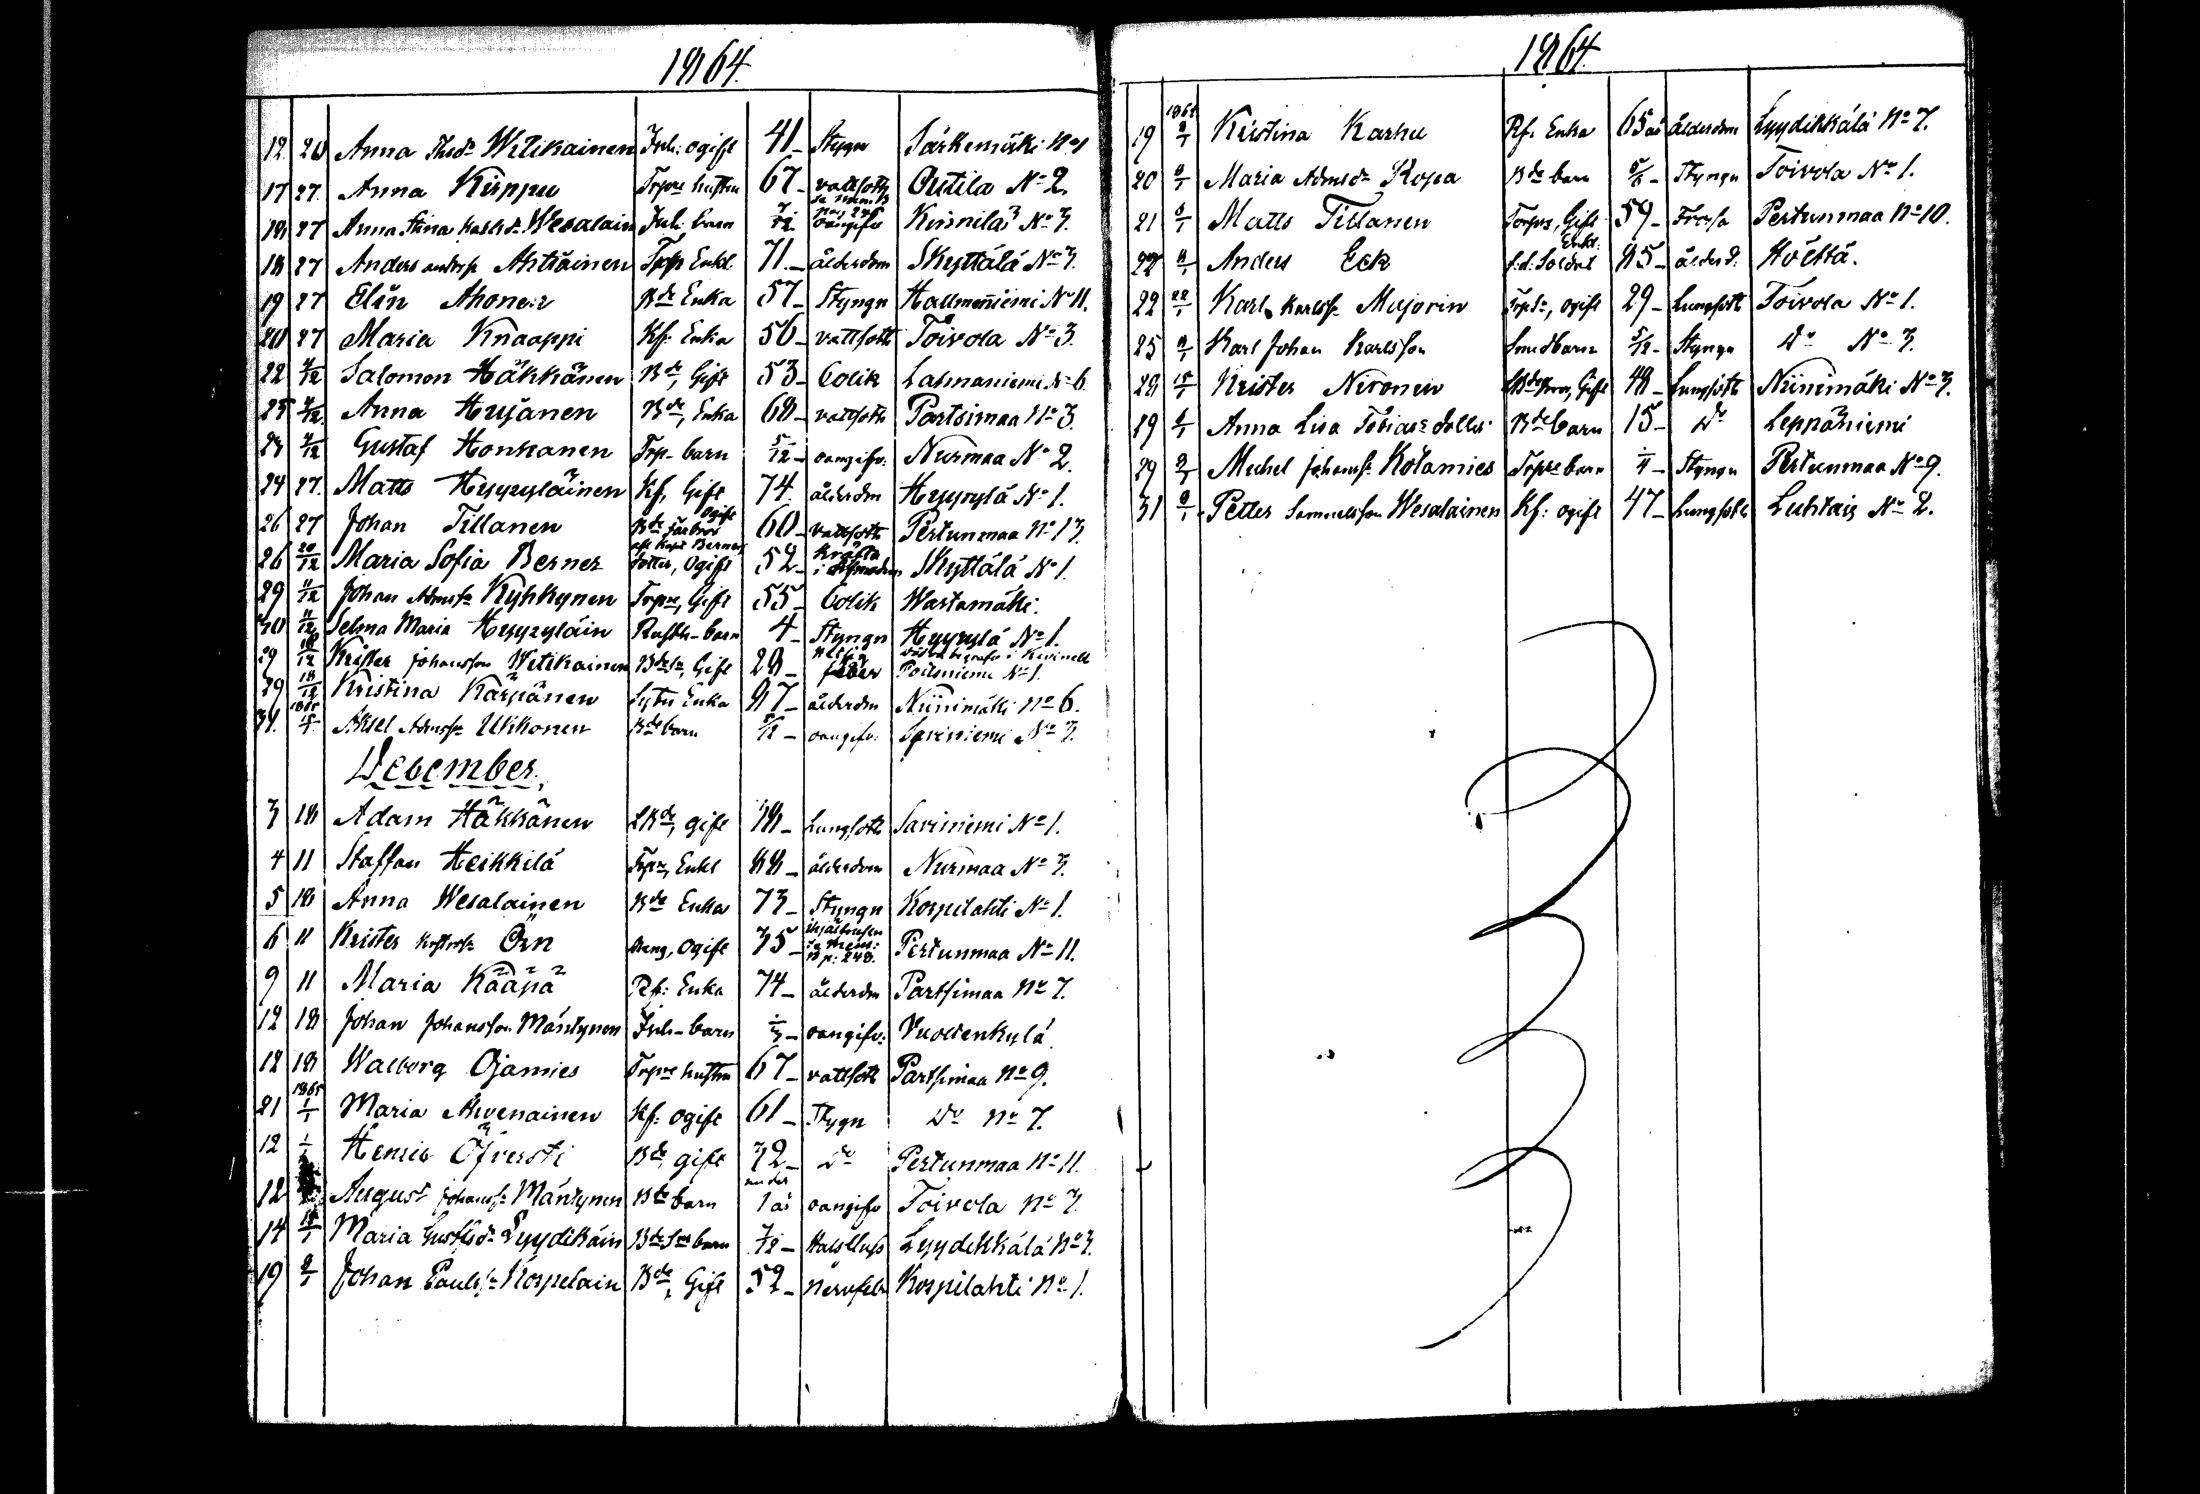 1864.
12 20 Anna Theds Witikainen Inh: ogift 41 Stygn Särkemäki No 1
17 27. Anna Kirppu Torpre hustru 67 vattsoth Outila No 2.
18 27 Anna Stina Karlsdr Wesalain Inh: barn 7/12 oangifv Kinnilä No 3.
18 27 Anders Andersn Ahtiainen Torp Enkl. 71. ålderdm Skyttälä No 3.
19 27 Elin Ahonen Bde Enka 57 Styngn Hallmenniemi No 11.
20 27 Maria Knaappi Kf: Enka 56 vattsoth Toivola No 3.
22 4/12 Salomon Häkkänen Bde, Gift 53 Colik Lahnaniemi No 6
25 4/12 Anna Hujanen Bde, Enka 68 vattsoth Partsimaa No 3.
23 4/12 Gustaf Honkanen Torp barn 5/12 oangifv: Nurmaa No 2.
24 27. Matts Hyyryläinen Kf, Gift 74. ålderdm Hyyrylä No 1.
26 27 Johan Tillanen Bde farbror ogift 60 vattsoth Pertunmaa No 13.
26 20/12 Maria Sofia Berner afl Kapt Berners dotter, Ogift 52 kräfta i Skyttälä No 1.
29 11/12 Johan Admsn Kyhkynen Torpre, Gift 55 Colik Wartamäki.
30 11/12 Selma Maria Hyyryläin Rusth barn 4 Styngn Hyyrylä No 1.
29 18/12 Krister Johansson Witikainen Bdesn, Gift 28 feber Poitiniemi No 1.
29 18/12 Kristina Kärpänen Sytn Enka 87 ålderdm Niinimäki No 6.
31. 1865 Aksel Admsn Ukkonen Bde barn oangifv: Saviniemi No 3.
December.
3 18 Adam Häkkänen LBde, gift 78 Lungsoth Saviniemi No 1.
4 11 Staffan Heikkilä Torpre, Enkl 88 ålderdom Nurmaa No 3.
5 18 Anna Wesalainen Bde Enka 73 Styngn Korpilahti No 1.
6 11 Krister Örn dreng, Ogift 75 ihjälfrusen p: 248. Pertunmaa No 11.
9 11 Maria Kääpä Rf: Enka 74 ålderdm Partsimaa No 7.
12 18 Johan Johansson Mäntynen Inh barn oangifv: Vuoltenkylä.
12 18 Walborg Ojamies Torpre hustru 67 vattsoth Partsimaa No 9.
21 1865 1/1 Maria Ahvenainen Kf: ogift 61 Stygn Do No 7.
12 1/1 Henric Öfversti Bde, gift 72 Do Pertunmaa No 11.
12 August Johansn Mäntynen Bde barn under 1 år oangifv Toivola No 3
14 Maria Gustfsdr Lyydikäin Bde Sns barn Halsfluss Lyydikkälä No 3.
19 8/1 Johan Paulsn Korpelain Bde, Gift 52 Nervfeb Korpilahti No 1.
1864.
19 1865 8/1 Kristina Karhu Rf. Enka 65 år ålderdm Lyydikkälä No 7.
20 8/1 Maria Admsdr Ropa Bde barn Styngn Toivola No 1.
21 6/1 Matts Tillanen Torpre, Gift 59 Frossa Pertunmaa No 10.
22 8/1 Anders Eck f.d. Soldat Enkl: 85 ålderd. Hölttä.
22 22/1 Karl Karlssn Majorin Torpsn, ogift 29 Lungsoth Toivola No 1.
25 8/1 Karl Johan Karlsson Smed barn 5/12 Styngn Do No 3.
29 15/1 Krister Nironen Gift 48 Lungsoth Niinimäki No 3.
29 6/1 Anna Lisa Tobiasdotter Bde barn 15 Do Leppäniemi
29 8/1 Michel Johansn Kolamies Torpre barn Styngn Pertunmaa No 9.
31 8/1 Petter Samuelsson Wesalainen Kf: ogift 47 Lungsoth Luhtais No 2.